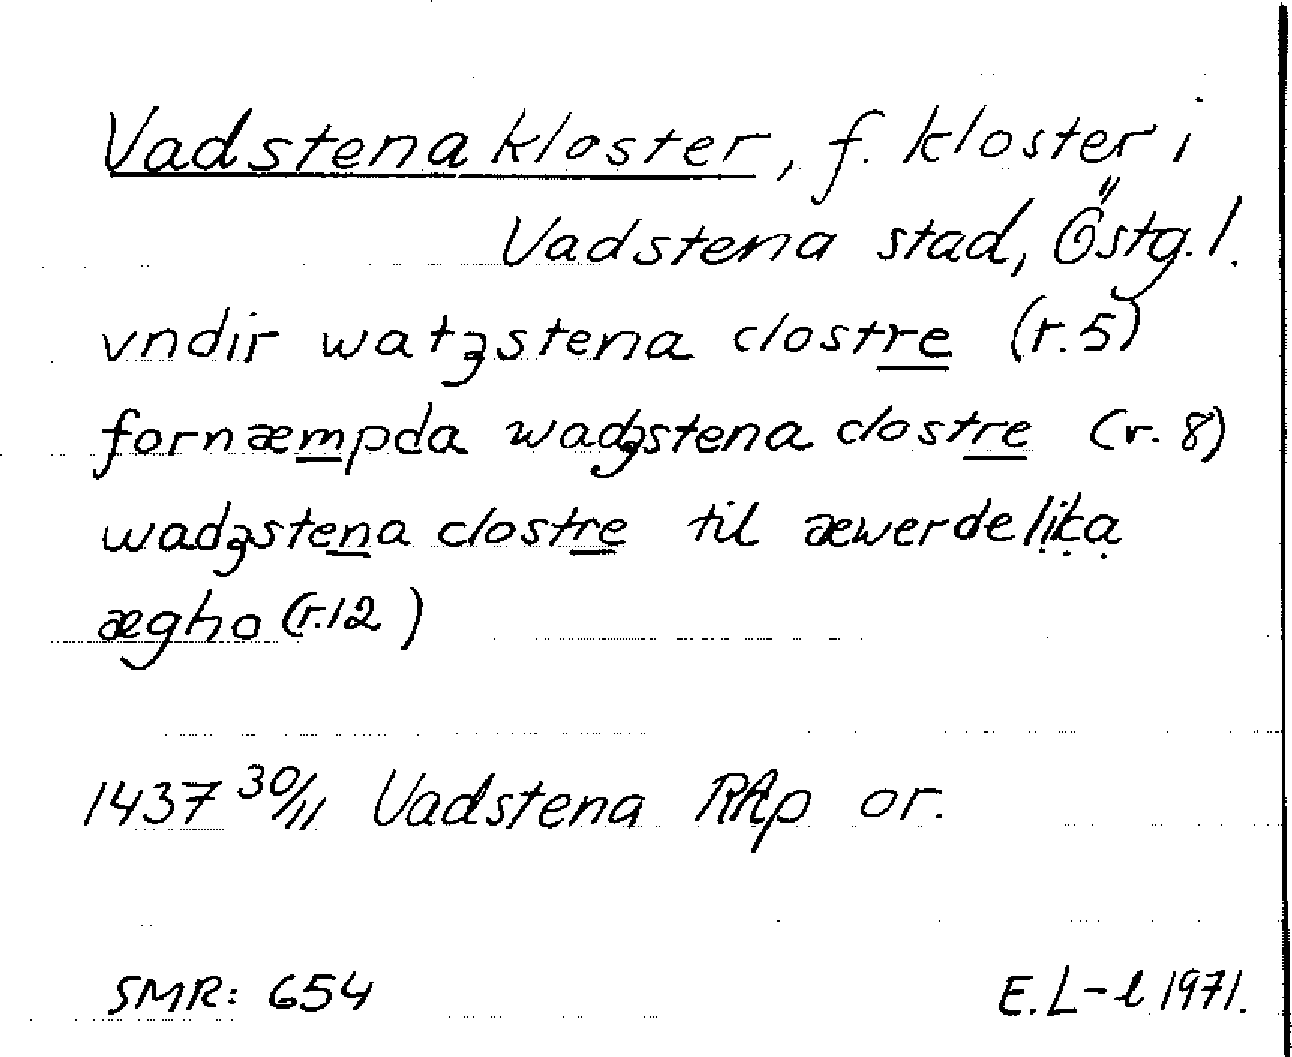 Vadstena kloster, f. kloster i
Vadstena stad, Östg.l.
vndir watʒstena clostre (r.5)
fornæmpda wadʒstena clostre (r. 8)
wadʒstena clostre til æwerdelika
ægho (r.12)
1437 30/11 Vadstena RAp or.
SMR: 654 E.L-l 1971.